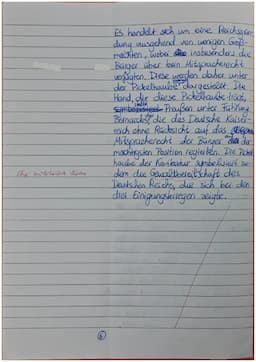 Es handelt sich um eine Reichsgrün-
dung ausgehend von wenigen Groß-
mächten, wobei insbesonders die
Bürger über kein Mitspracherecht
verfügten. Diese werden daher unter
der Pickelhaube dargestellt. Die
Hand, die diese Pickelhaube hält,
soll Preußen unter Führung
Bismarcks, die das Deutsche Kaiser-
reich ohne Rücksicht auf das
Mitspracherecht der Bürger der
mächtigsten Position regierten. Die Pickel-
haube der Karikatur symbolisiert zu-
dem die Gewaltbereitschaft des
Deutschen Reichs, die sich bei den
drei Einigungskriegen zeigte.
6